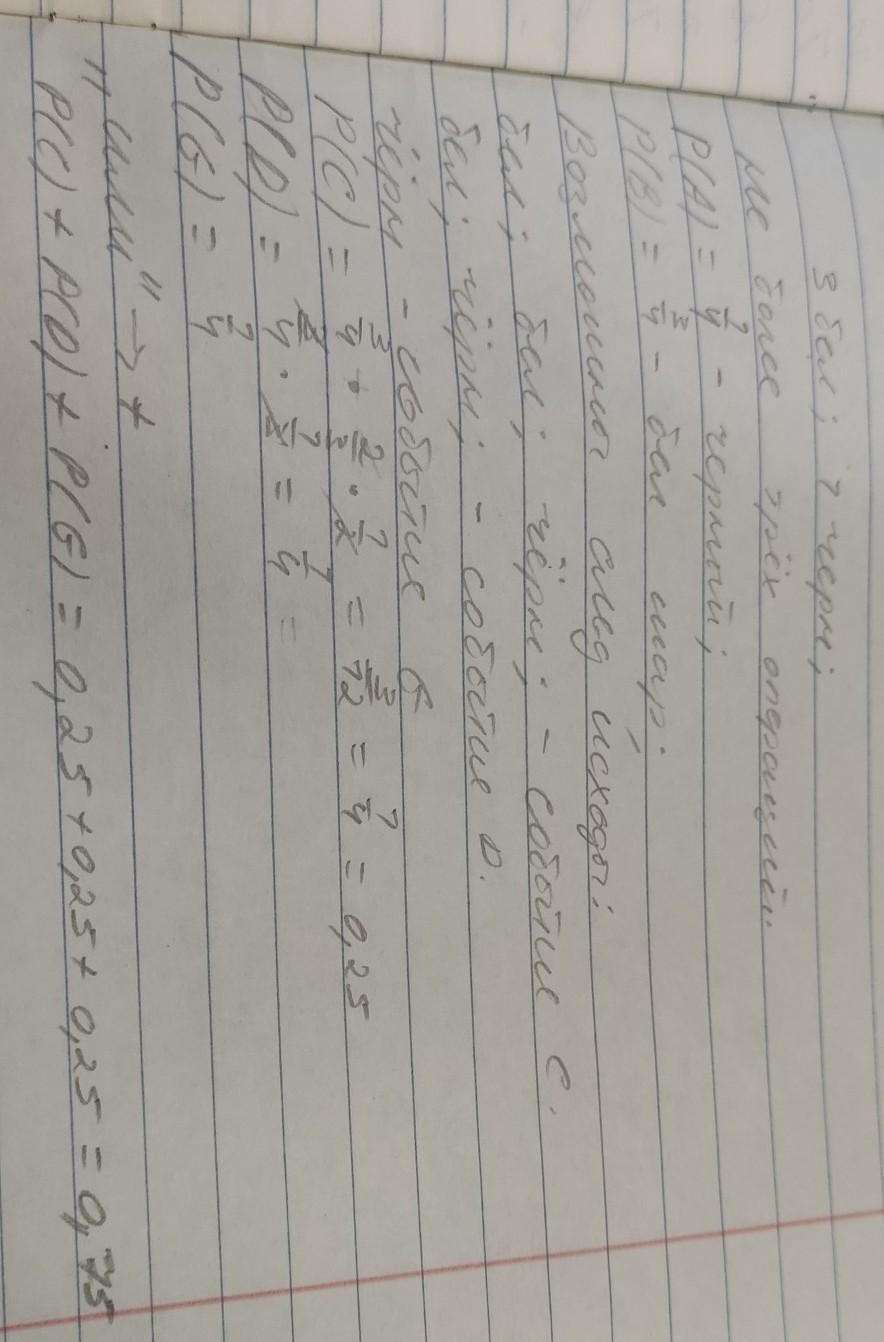 3 бел; 1 черн;
Не более трёх операций.
P(A) = 1/4 - черный;
P(B) = 3/4 - бел шар.
Возможны след исходы:
бел; бел; чёрн; - событие C.
бел; чёрн; - событие D.
чёрн - событие G
P(C) = 3/4 + 2/3 · 1/2 = 3/12 = 1/4 = 0,25
P(D) = 3/4 · 1/3 = 1/4 =
P(G) = 1/4
"или" → +
P(C) + P(D) + P(G) = 0,25 + 0,25 + 0,25 = 0,75